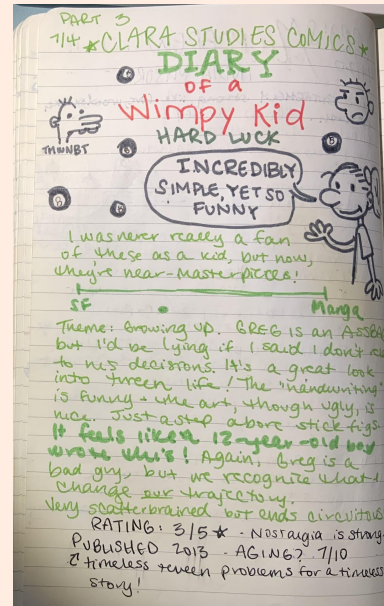 PART 3
7/4 ★CLARA STUDIES COMICS★
DIARY
OF a
Wimpy Kid
HARD LUCK
THWNBT
8
8
INCREDIBLY
SIMPLE, YET SO
FUNNY
I was never really a fan
of these as a kid, but now,
they're near-masterpieces!
SF Manga
Theme: Growing up. GREG IS an
but I'd be lying if I said I don't
to his decisions. It's a great look
into tween life! The "handwriting"
is funny + the art, though ugly, is
nice. Just a step above stick-figs.
It feels like a 12-year-old boy
wrote this! Again, Greg is a
bad guy, but we recognize what
change our trajectory.
Very scatterbrained but ends
RATING: 3/5★ - Nostalgia is strong
PUBLISHED 2013 - AGING? 7/10
timeless tween problems for a timeless
story!